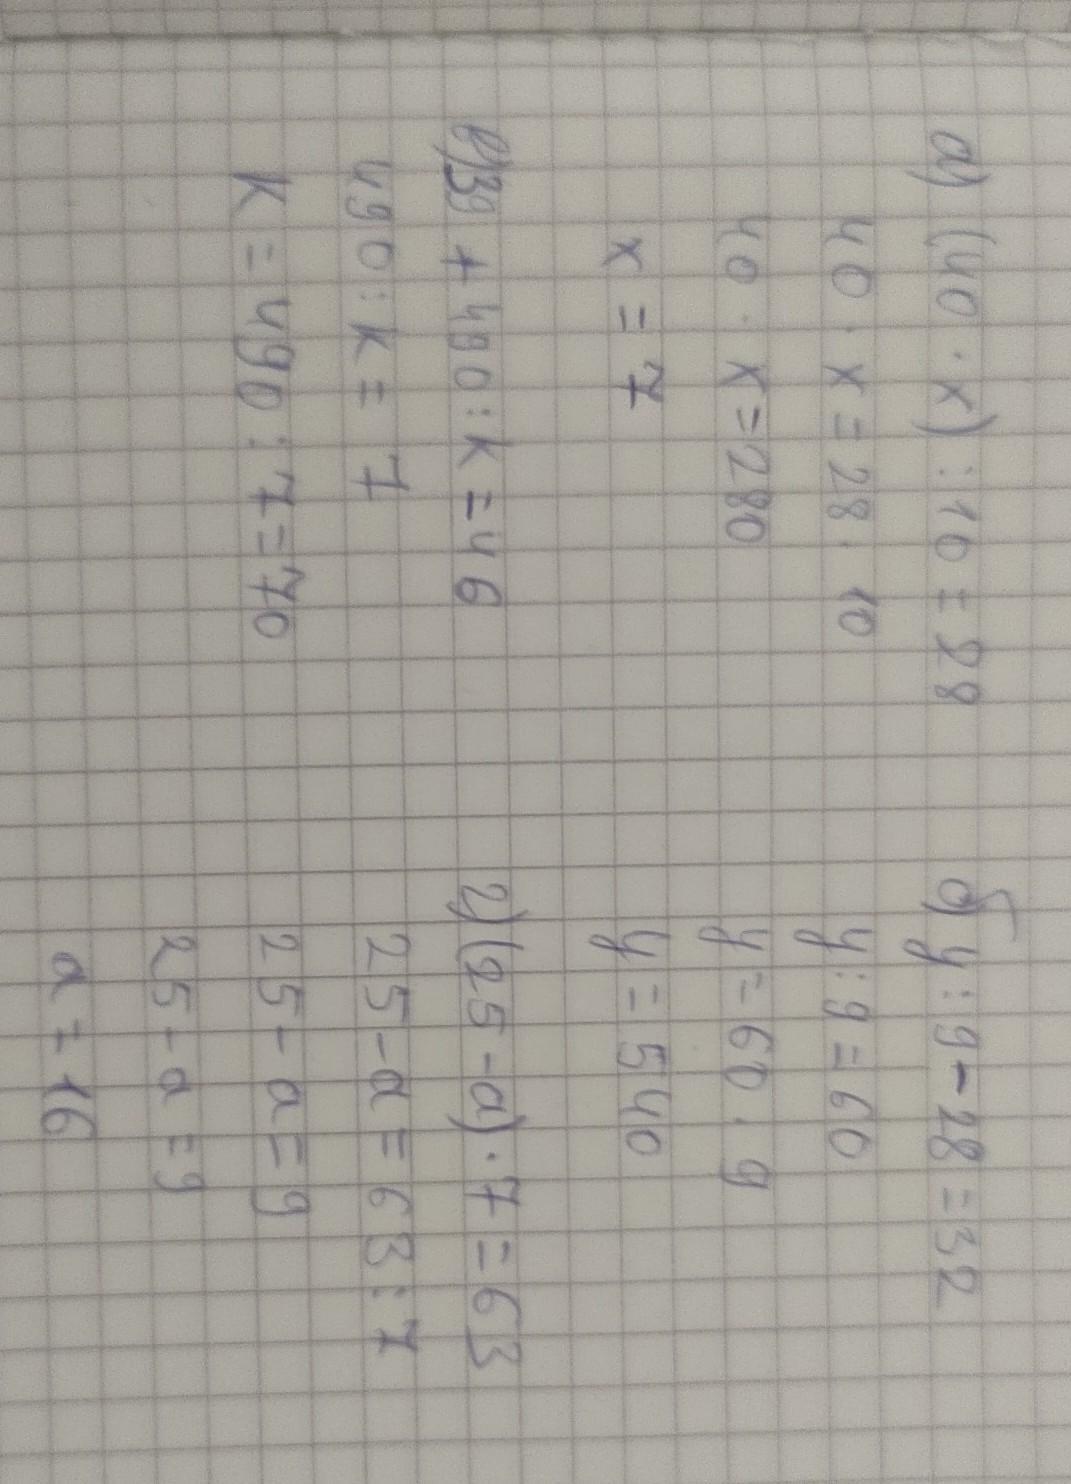 а) (40 · x) : 10 = 28
40 · x = 28 · 10
40 · x = 280
x = 7
б) y : 9 - 28 = 32
y : 9 = 60
y = 60 · 9
y = 540
в) 39 + 490 : k = 46
490 : k = 7
k = 490 : 7 = 70
г) (25 - a) · 7 = 63
25 - a = 63 : 7
25 - a = 9
25 - a = 9
a = 16